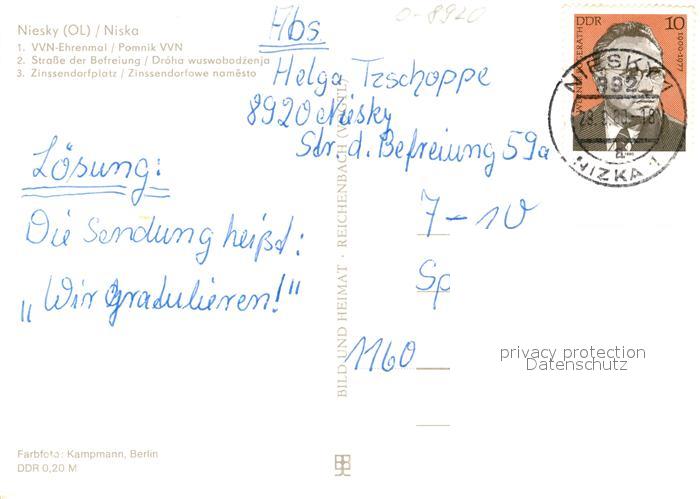 Niesky (OL) / Niska
1. VVN-Ehrenmal / Pomnik VVN
2. Straße der Befreiung / Dróha wuswobodźenja
3. Zinssendorfplatz / Zinssendorfowe naměsto
o-8920
Abs
Helga Tzschoppe
8920 Niesky
Str. d. Befreiung 59a
Lösung:
Die Sendung heißt:
„Wir gradulieren!"
7-10
Sp
1160
DDR
10
1900-1977
NIESKY 1
892
NIZKA 1
a
BILD UND HEIMAT · REICHENBACH (VOGTL)
privacy protection
Datenschutz
Farbfoto: Kampmann, Berlin
DDR 0,20 M